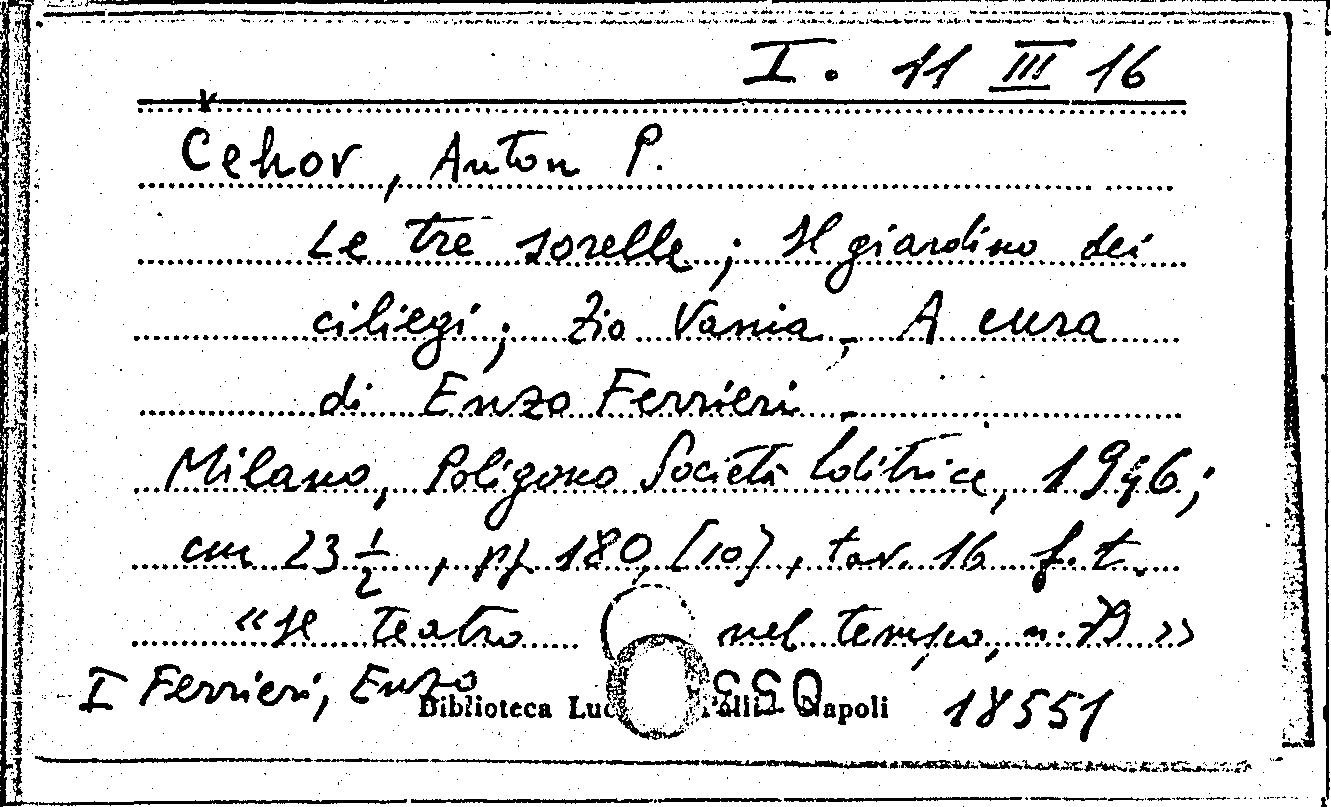 I. 11 III 16
Čehov, Anton P.
Le tre sorelle; Il giardino dei
ciliegi; Zio Vania. A cura
di Enzo Ferrieri.
Milano, Poligono Società Editrice, 1946;
cm 23 1/2, pp. 180, [10], tav. 16 f.t.
«Il teatro nel tempo, n. »
I Ferrieri, Enzo
Biblioteca Napoli 18551